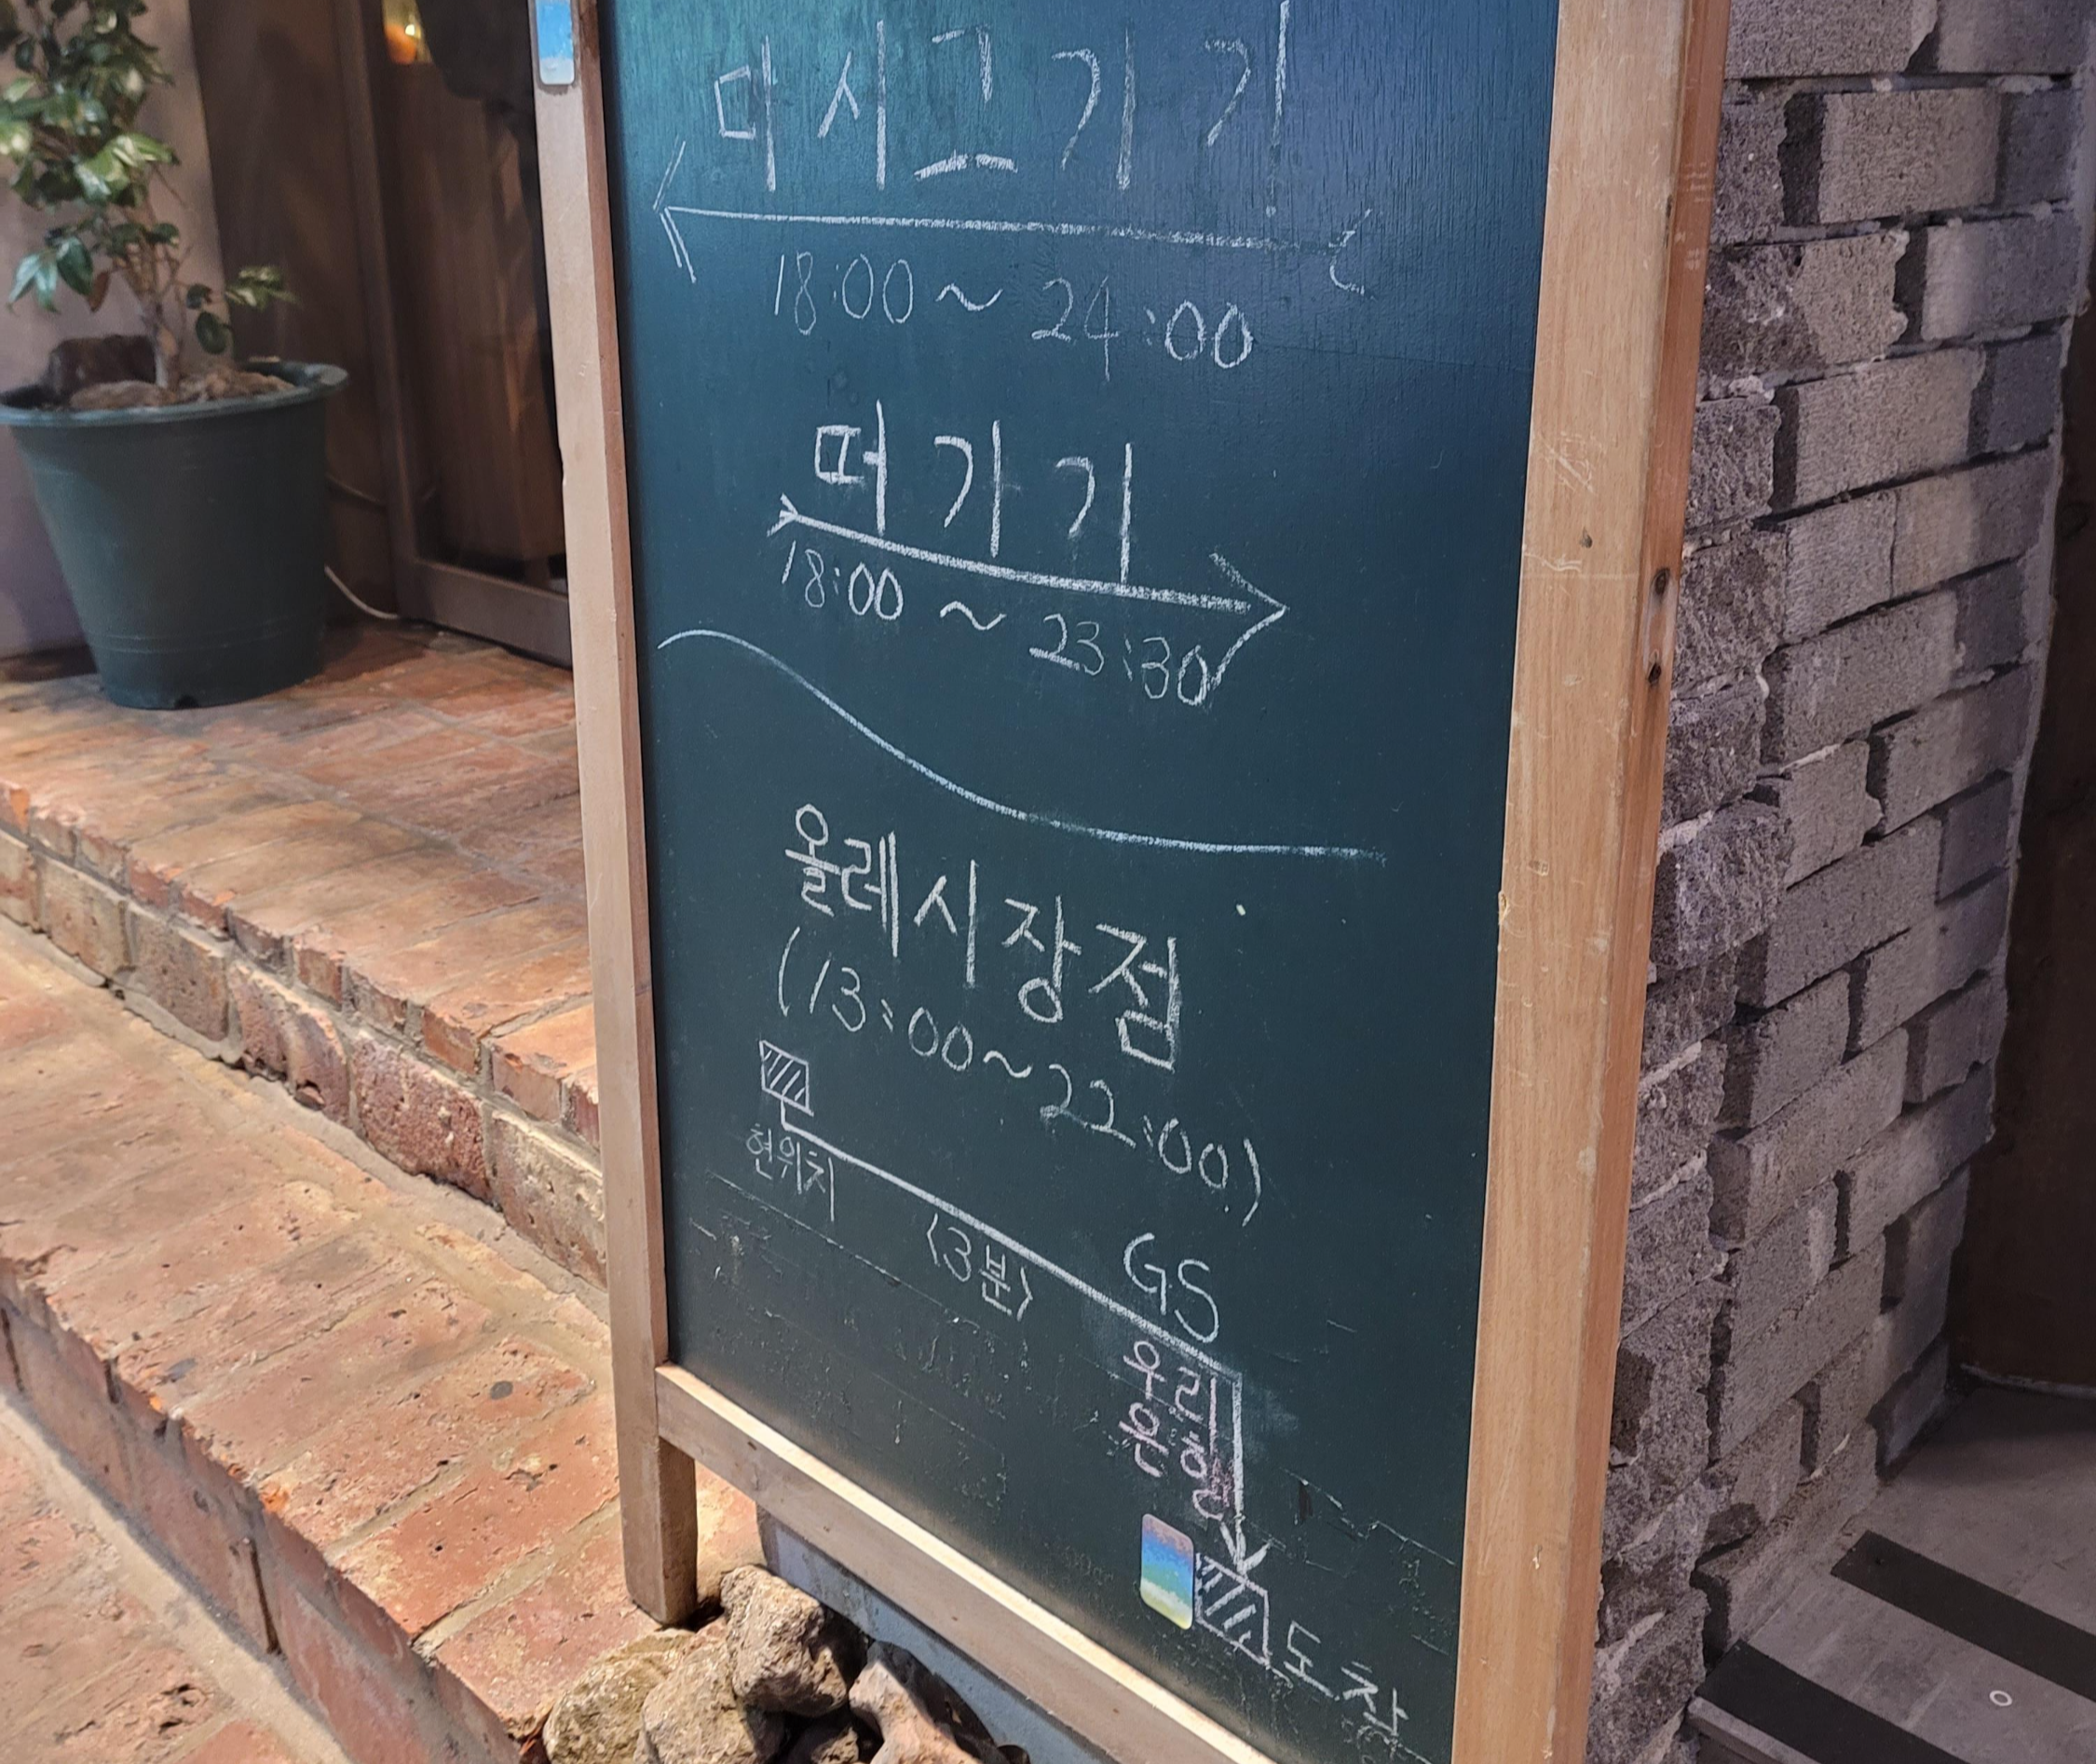 마시고가기
18:00~24:00
떠가기
18:00~23:30
올레시장점
(13:00~22:00)
현위치
(3분)
GS
우리
은행
도착